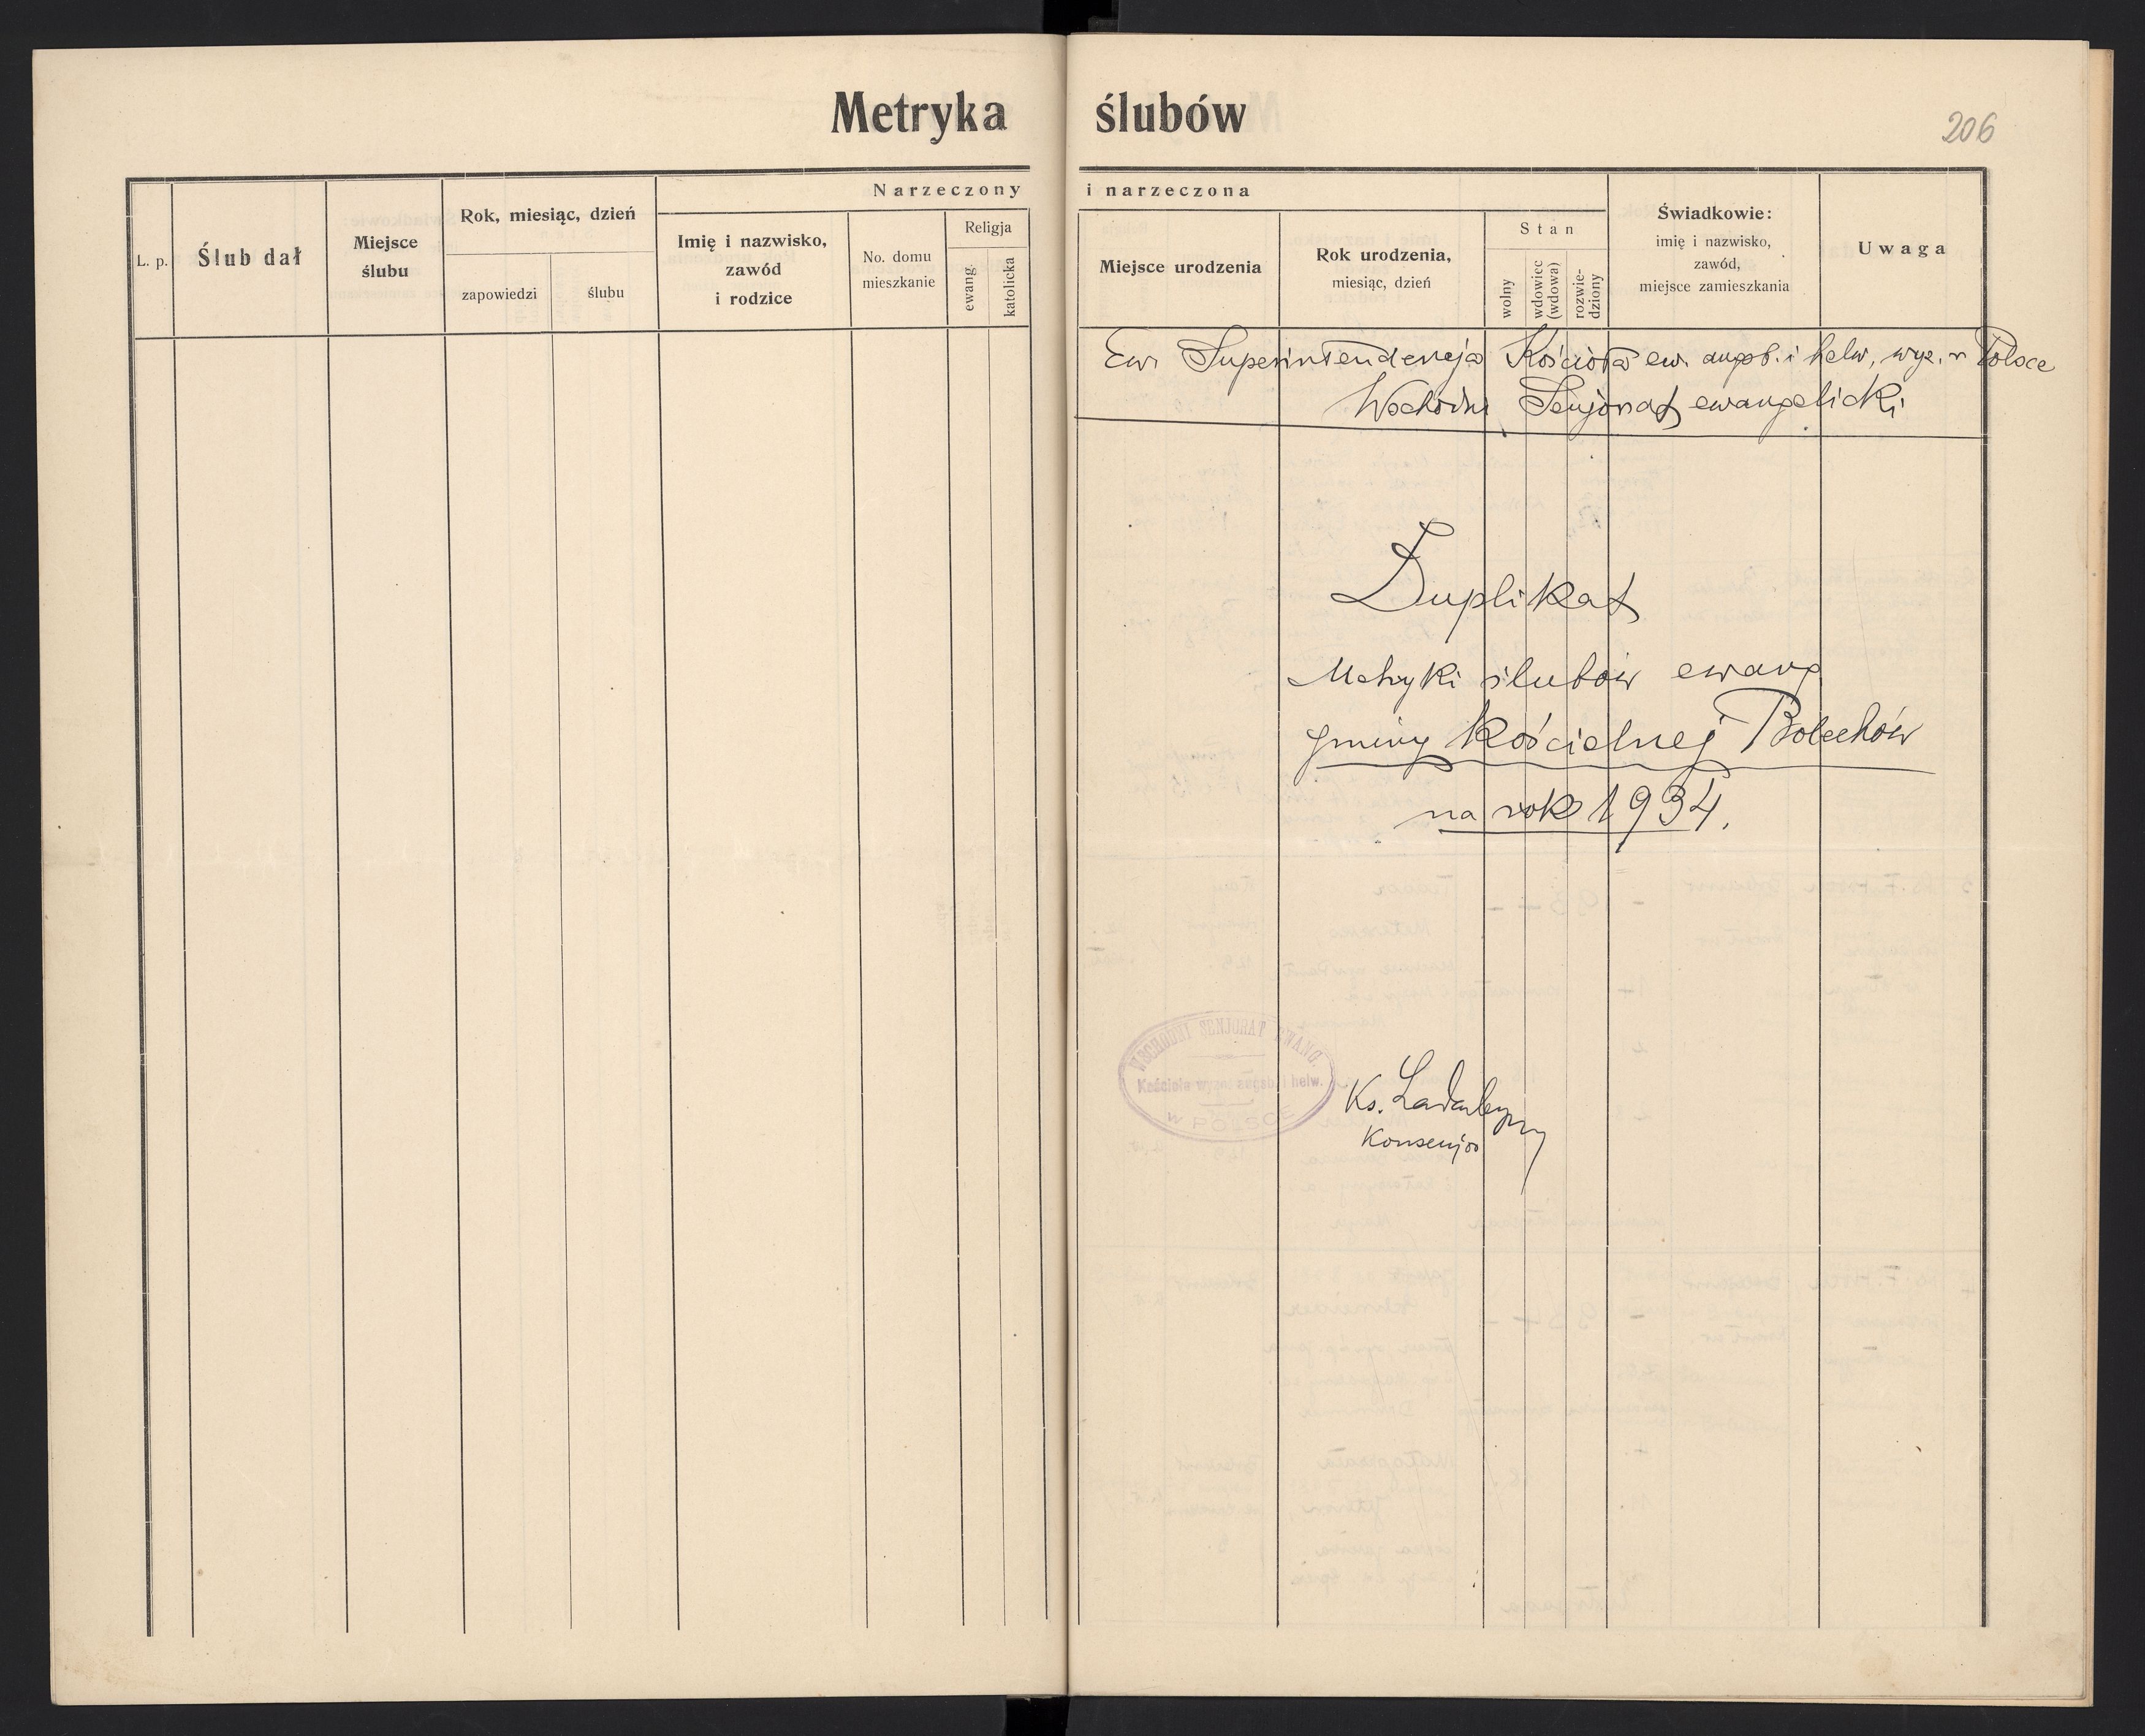 Metryka ślubów
206
Narzeczony i narzeczona
L. p.
Ślub dał
Miejsce
ślubu
Rok, miesiąc, dzień
zapowiedzi
ślubu
Imię i nazwisko,
zawód
i rodzice
No. domu
mieszkanie
Religja
ewang.
katolicka
Miejsce urodzenia
Rok urodzenia,
miesiąc, dzień
Stan
wolny
wdowiec
(wdowa)
rozwie-
dziony
Świadkowie:
imię i nazwisko,
zawód,
miejsce zamieszkania
Uwaga
Ew. Superintendencja Kościoła ew. augsb. i helw. wyz. w Polsce
Wschodni Senjorat ewangelicki
Duplikat
Metryki ślubów ewang
gminy kościelnej Bolechów
na rok 1934.
WSCHODNI SENJORAT EWANG.
Kościoła wyzn. augsb. i helw.
W POLSCE
Ks.
Konsenjor